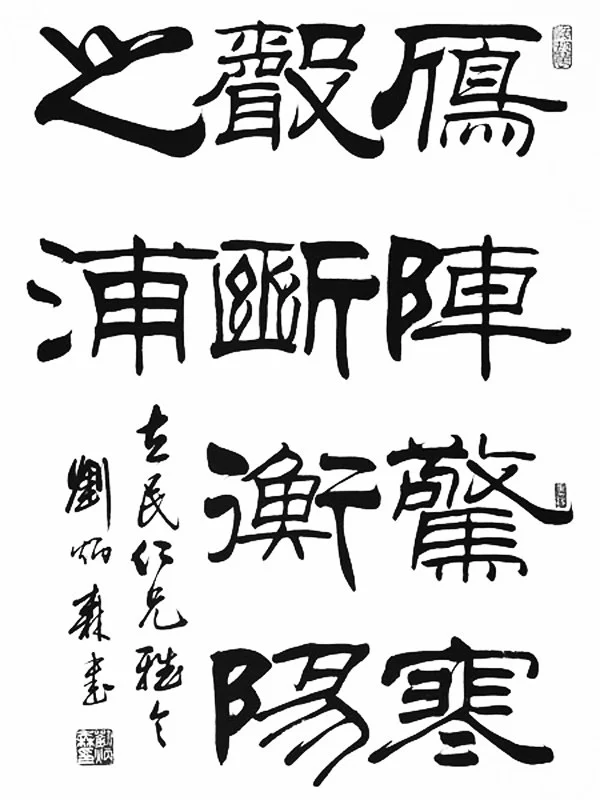 鴈陣驚寒
聲斷衡陽
之浦
民仁兄雅
劉炳森書